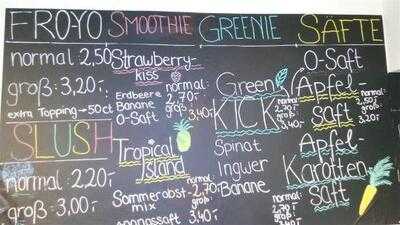 FROYO
normal: 2,50
groß: 3,20,-
extra Topping → 50ct
SLUSH
normal: 2,20,-
groß: 3,00,-
SMOOTHIE
Strawberry-
kiss
Erdbeere
Banane
O-Saft
normal:
2,70,-
groß:
3,40,-
Tropical
Island
Sommerobst-
mix
Ananassaft
normal:
2,70,-
groß:
3,40,-
GREENIE
Green
KICK
Spinat
Ingwer
Banane
normal:
2,70
groß:
3,40,-
SÄFTE
O-Saft
Apfel-
saft
normal:
2,50,-
groß:
3,20,-
Apfel-
Karotten-
saft
normal:
2,70,-
groß:
3,40,-